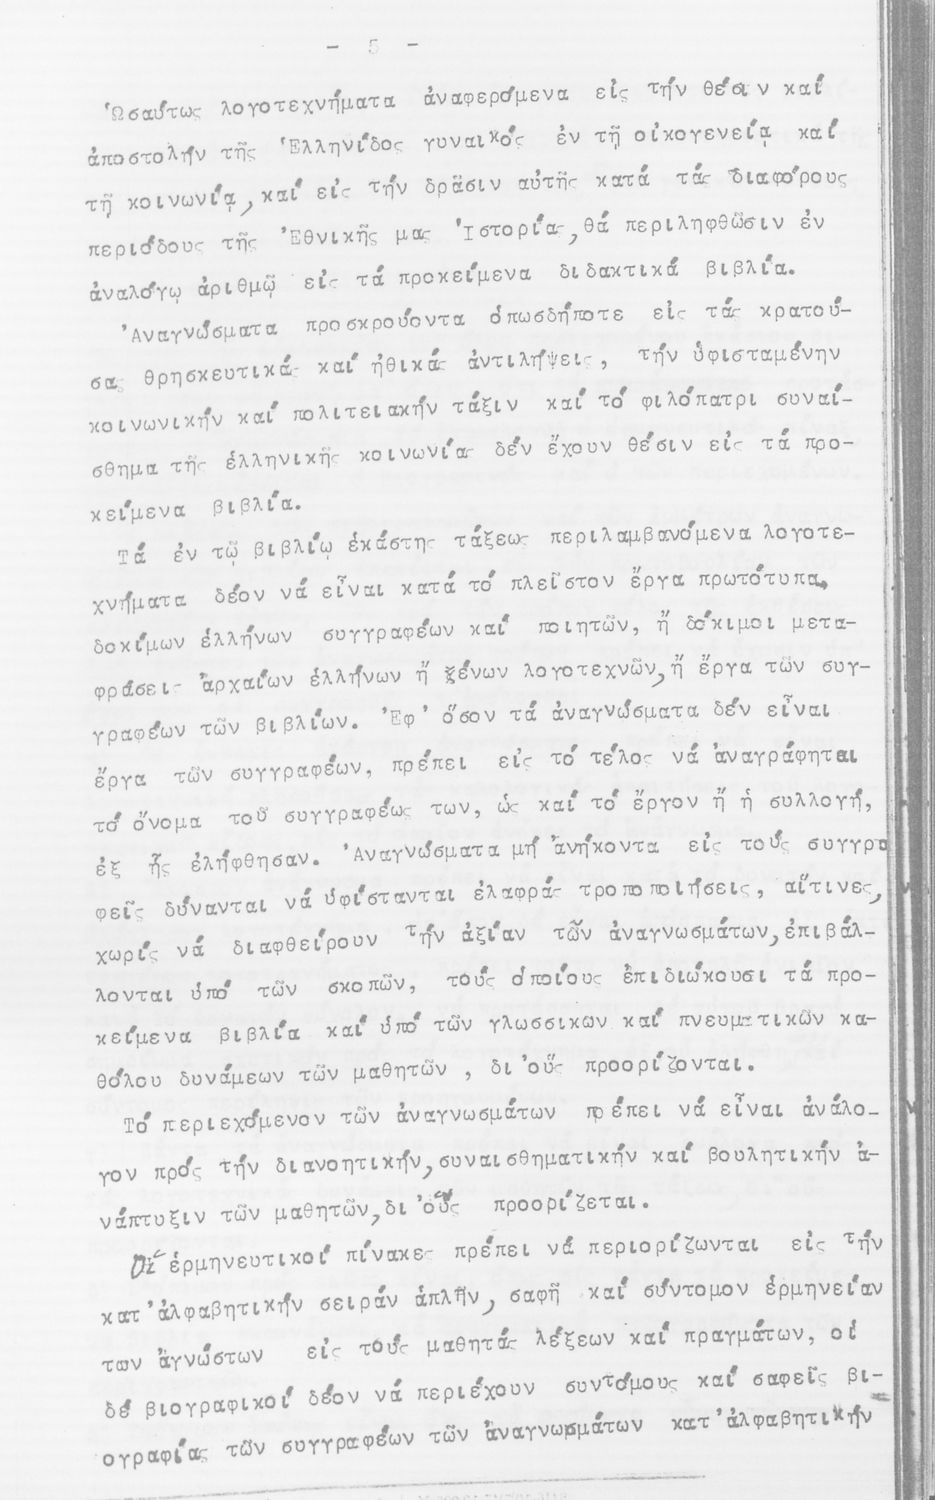 - 5 -
Ὡσαύτως λογοτεχνήματα ἀναφερόμενα εἰς τήν θέσιν καί
ἀποστολήν τῆς Ἑλληνίδος γυναικός ἐν τῇ οἰκογενείᾳ καί
τῇ κοινωνίᾳ, καί εἰς τήν δρᾶσιν αὐτῆς κατά τάς διαφόρους
περιόδους τῆς Ἐθνικῆς μας Ἱστορίας, θά περιληφθῶσιν ἐν
ἀναλόγῳ ἀριθμῷ εἰς τά προκείμενα διδακτικά βιβλία.
Ἀναγνώσματα προσκρούοντα ὁπωσδήποτε εἰς τάς κρατού-
σας θρησκευτικάς καί ἠθικάς ἀντιλήψεις, τήν ὑφισταμένην
κοινωνικήν καί πολιτειακήν τάξιν καί τό φιλόπατρι συναί-
σθημα τῆς ἑλληνικῆς κοινωνίας δέν ἔχουν θέσιν εἰς τά προ-
κείμενα βιβλία.
Τά ἐν τῷ βιβλίῳ ἑκάστης τάξεως περιλαμβανόμενα λογοτε-
χνήματα δέον νά εἶναι κατά τό πλεῖστον ἔργα πρωτότυπα,
δοκίμων ἑλλήνων συγγραφέων καί ποιητῶν, ἤ δόκιμοι μετα-
φράσεις ἀρχαίων ἑλλήνων ἤ ξένων λογοτεχνῶν, ἤ ἔργα τῶν συγ-
γραφέων τῶν βιβλίων. Ἐφ' ὅσον τά ἀναγνώσματα δέν εἶναι
ἔργα τῶν συγγραφέων, πρέπει εἰς τό τέλος νά ἀναγράφηται
τό ὄνομα τοῦ συγγραφέως των, ὡς καί τό ἔργον ἤ ἡ συλλογή,
ἐξ ἧς ἐλήφθησαν. Ἀναγνώσματα μή ἀνήκοντα εἰς τούς συγγρα
φεῖς δύνανται νά ὑφίστανται ἐλαφράς τροποποιήσεις, αἵτινες,
χωρίς νά διαφθείρουν τήν ἀξίαν τῶν ἀναγνωσμάτων, ἐπιβάλ-
λονται ὑπό τῶν σκοπῶν, τούς ὁποίους ἐπιδιώκουσι τά προ-
κείμενα βιβλία καί ὑπό τῶν γλωσσικῶν καί πνευματικῶν κα-
θόλου δυνάμεων τῶν μαθητῶν, δι' οὕς προορίζονται.
Τό περιεχόμενον τῶν ἀναγνωσμάτων πρέπει νά εἶναι ἀνάλο-
γον πρός τήν διανοητικήν, συναισθηματικήν καί βουλητικήν ἀ-
νάπτυξιν τῶν μαθητῶν, δι' οὕς προορίζεται.
Οἱ ἑρμηνευτικοί πίνακες πρέπει νά περιορίζωνται εἰς τήν
κατ' ἀλφαβητικήν σειράν ἁπλῆν, σαφῆ καί σύντομον ἑρμηνείαν
των ἀγνώστων εἰς τούς μαθητάς λέξεων καί πραγμάτων, οἱ
δέ βιογραφικοί δέον νά περιέχουν συντόμους καί σαφεῖς βι-
ογραφίας τῶν συγγραφέων τῶν ἀναγνωσμάτων κατ' ἀλφαβητικήν